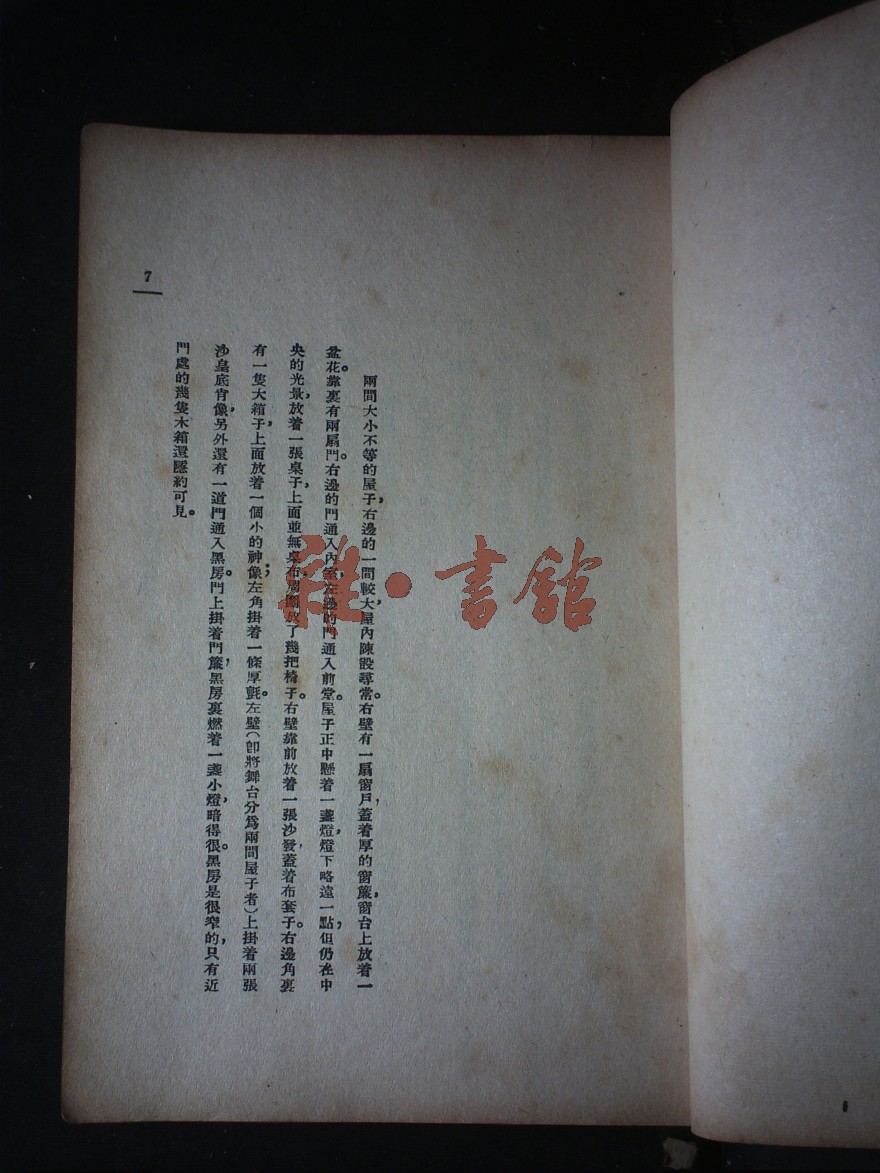 兩間大小不等的屋子，右邊的一間較大，屋內陳設尋常。右壁有一扇窗戶，蓋着厚的窗簾，窗台上放着一
盆花。靠裏有兩扇門。右邊的門通入內室，左邊的門通入前堂。屋子正中懸着一盞燈，燈下略遠一點，但仍在中
央的光景，放着一張桌子，上面並無桌布，周圍放了幾把椅子。右壁靠前放着一張沙發，蓋着布套子。右邊角裏
有一隻大箱子，上面放着一個小的神像；左角掛着一條厚氈。左壁（卽將舞台分爲兩間屋子者）上掛着兩張
沙皇底肖像，另外還有一道門通入黑房。門上掛着門簾，黑房裏燃着一盞小燈，暗得很。黑房是很窄的，只有近
門處的幾隻木箱還隱約可見。
7
雜·書館